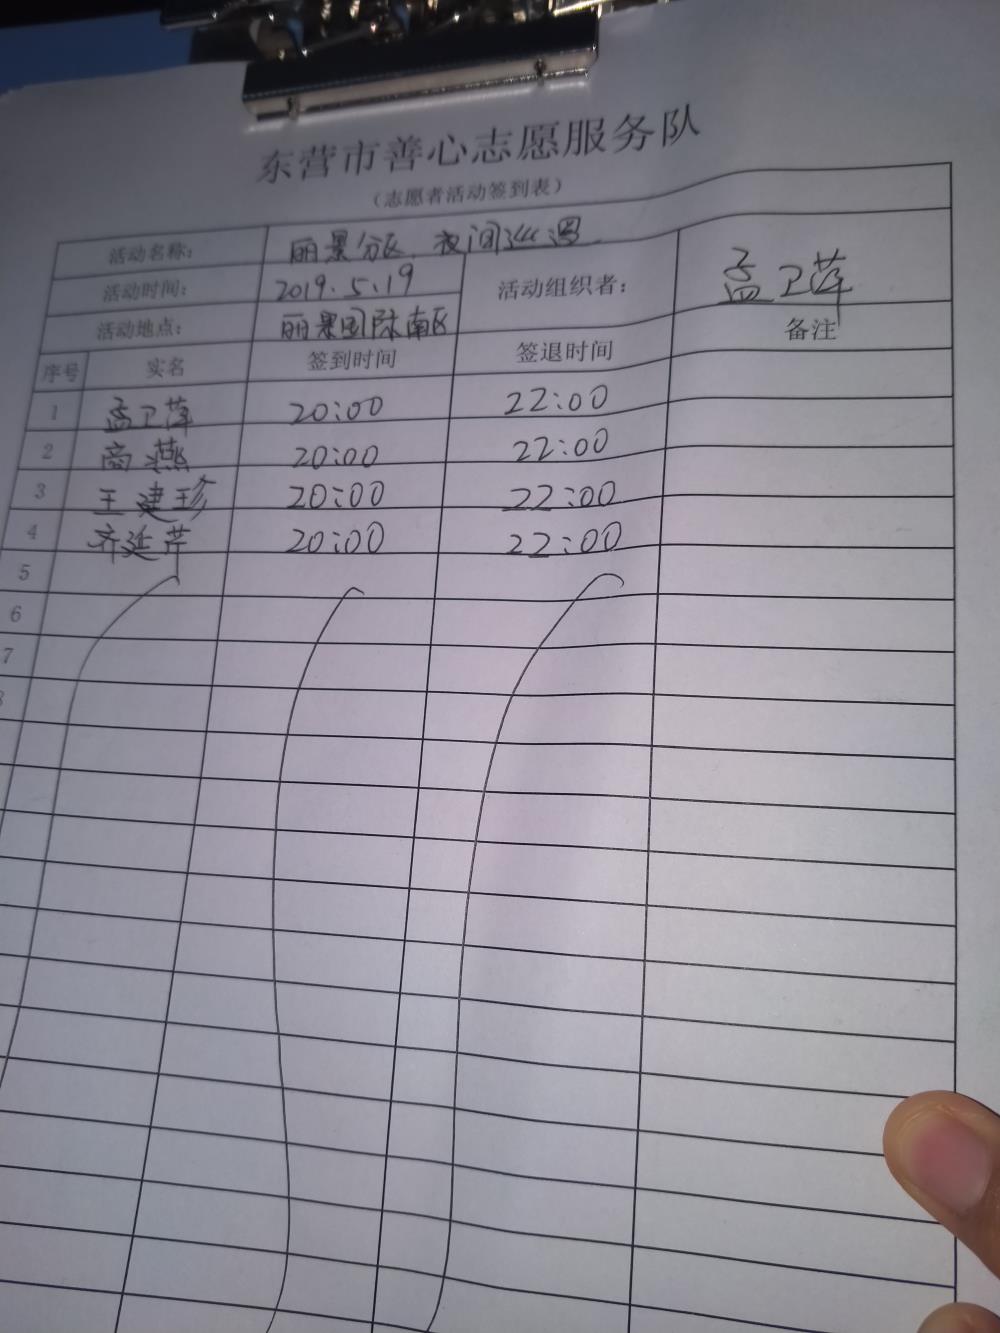 东营市善心志愿服务队
（志愿者活动签到表）
活动名称： 丽景分区、夜间巡逻
活动时间： 2019.5.19 活动组织者： 孟卫萍
活动地点： 丽景国际南区
序号 实名 签到时间 签退时间 备注
1 孟卫萍 20:00 22:00
2 商燕 20:00 22:00
3 王建珍 20:00 22:00
4 齐延芹 20:00 22:00
5
6
7
8